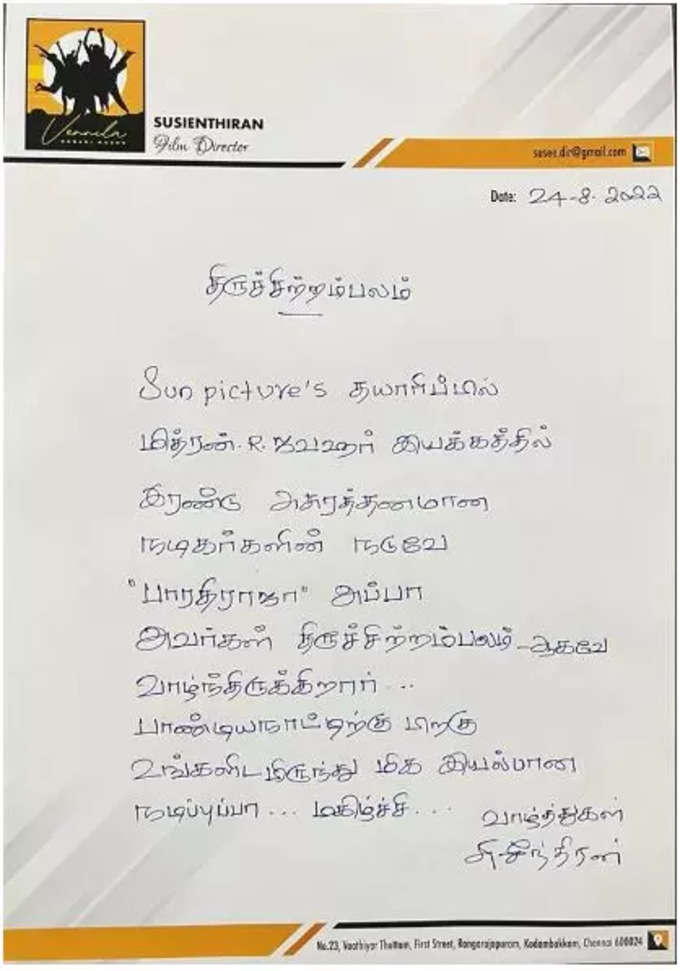 Vennila
SUSIENTHIRAN
Film Director
susee.dir@gmail.com
Date: 24-8-2022
திருச்சிற்றம்பலம்
Sun picture's தயாரிப்பில்
மித்ரன்.R.ஜவஹர் இயக்கத்தில்
இரண்டு அசுரத்தனமான
நடிகர்களின் நடுவே
"பாரதிராஜா" அப்பா
அவர்கள் திருச்சிற்றம்பலம்-ஆகவே
வாழ்ந்திருக்கிறார்...
பாண்டியநாட்டிற்கு பிறகு
உங்களிடமிருந்து மிக இயல்பான
நடிப்புப்பா... மகிழ்ச்சி...
வாழ்த்துகள்
சுசீந்திரன்
No.23, Vaathiyar Thottam, First Street, Rangarajapuram, Kodambakkam, Chennai 600024